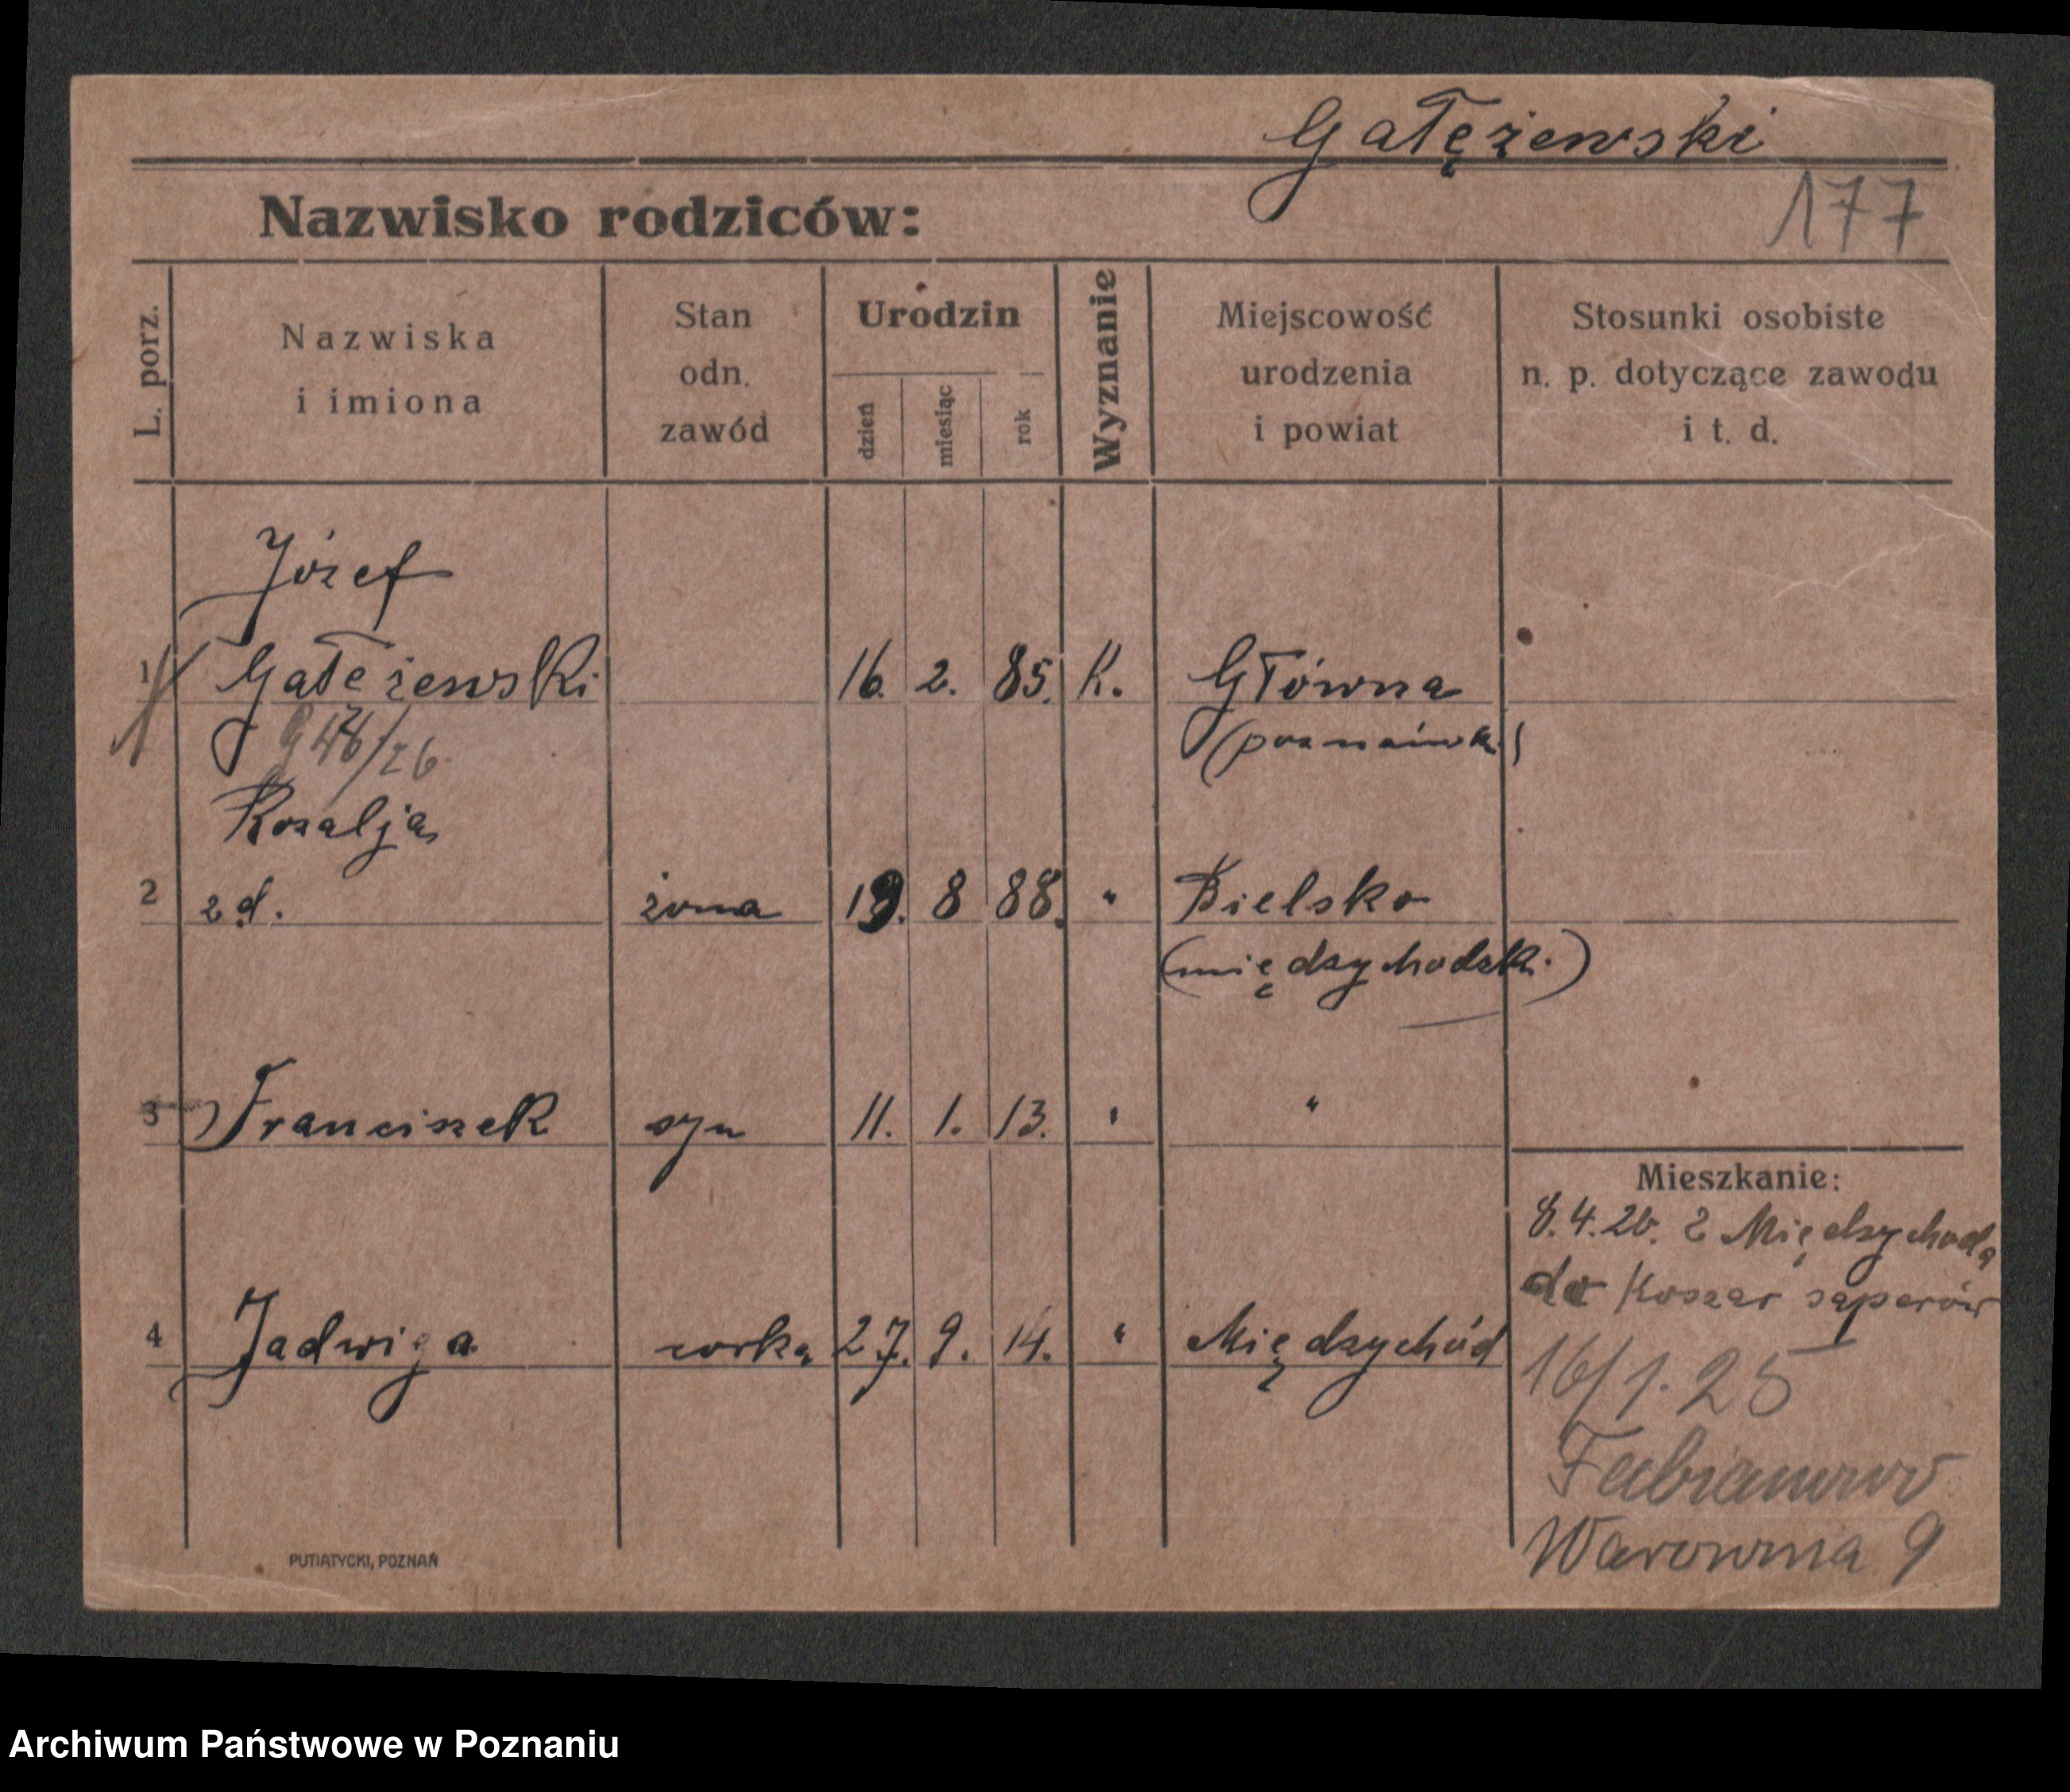 Gałężewski
177
Nazwisko rodziców:
L. porz.
Nazwiska
i imiona
Stan
odn.
zawód
Urodzin
dzień
miesiąc
rok
Wyznanie
Miejscowość
urodzenia
i powiat
Stosunki osobiste
n. p. dotyczące zawodu
i t. d.
Józef
1 Gałeżewski 16. 2. 85. K. Główna
/26 (poznański)
Rozalja
2 z d. żona 19. 8 88. " Bielsko
(międzychodzki.)
3 Franciszek syn 11. 1. 13. " "
Mieszkanie:
8.4.26. z Międzychodą
do Koszar saperów
4 Jadwiga corka 27. 9. 14. " Międzychód
16/1.25
Fabianowo
Warownia 9
PUTIATYCKI, POZNAŃ
Archiwum Państwowe w Poznaniu